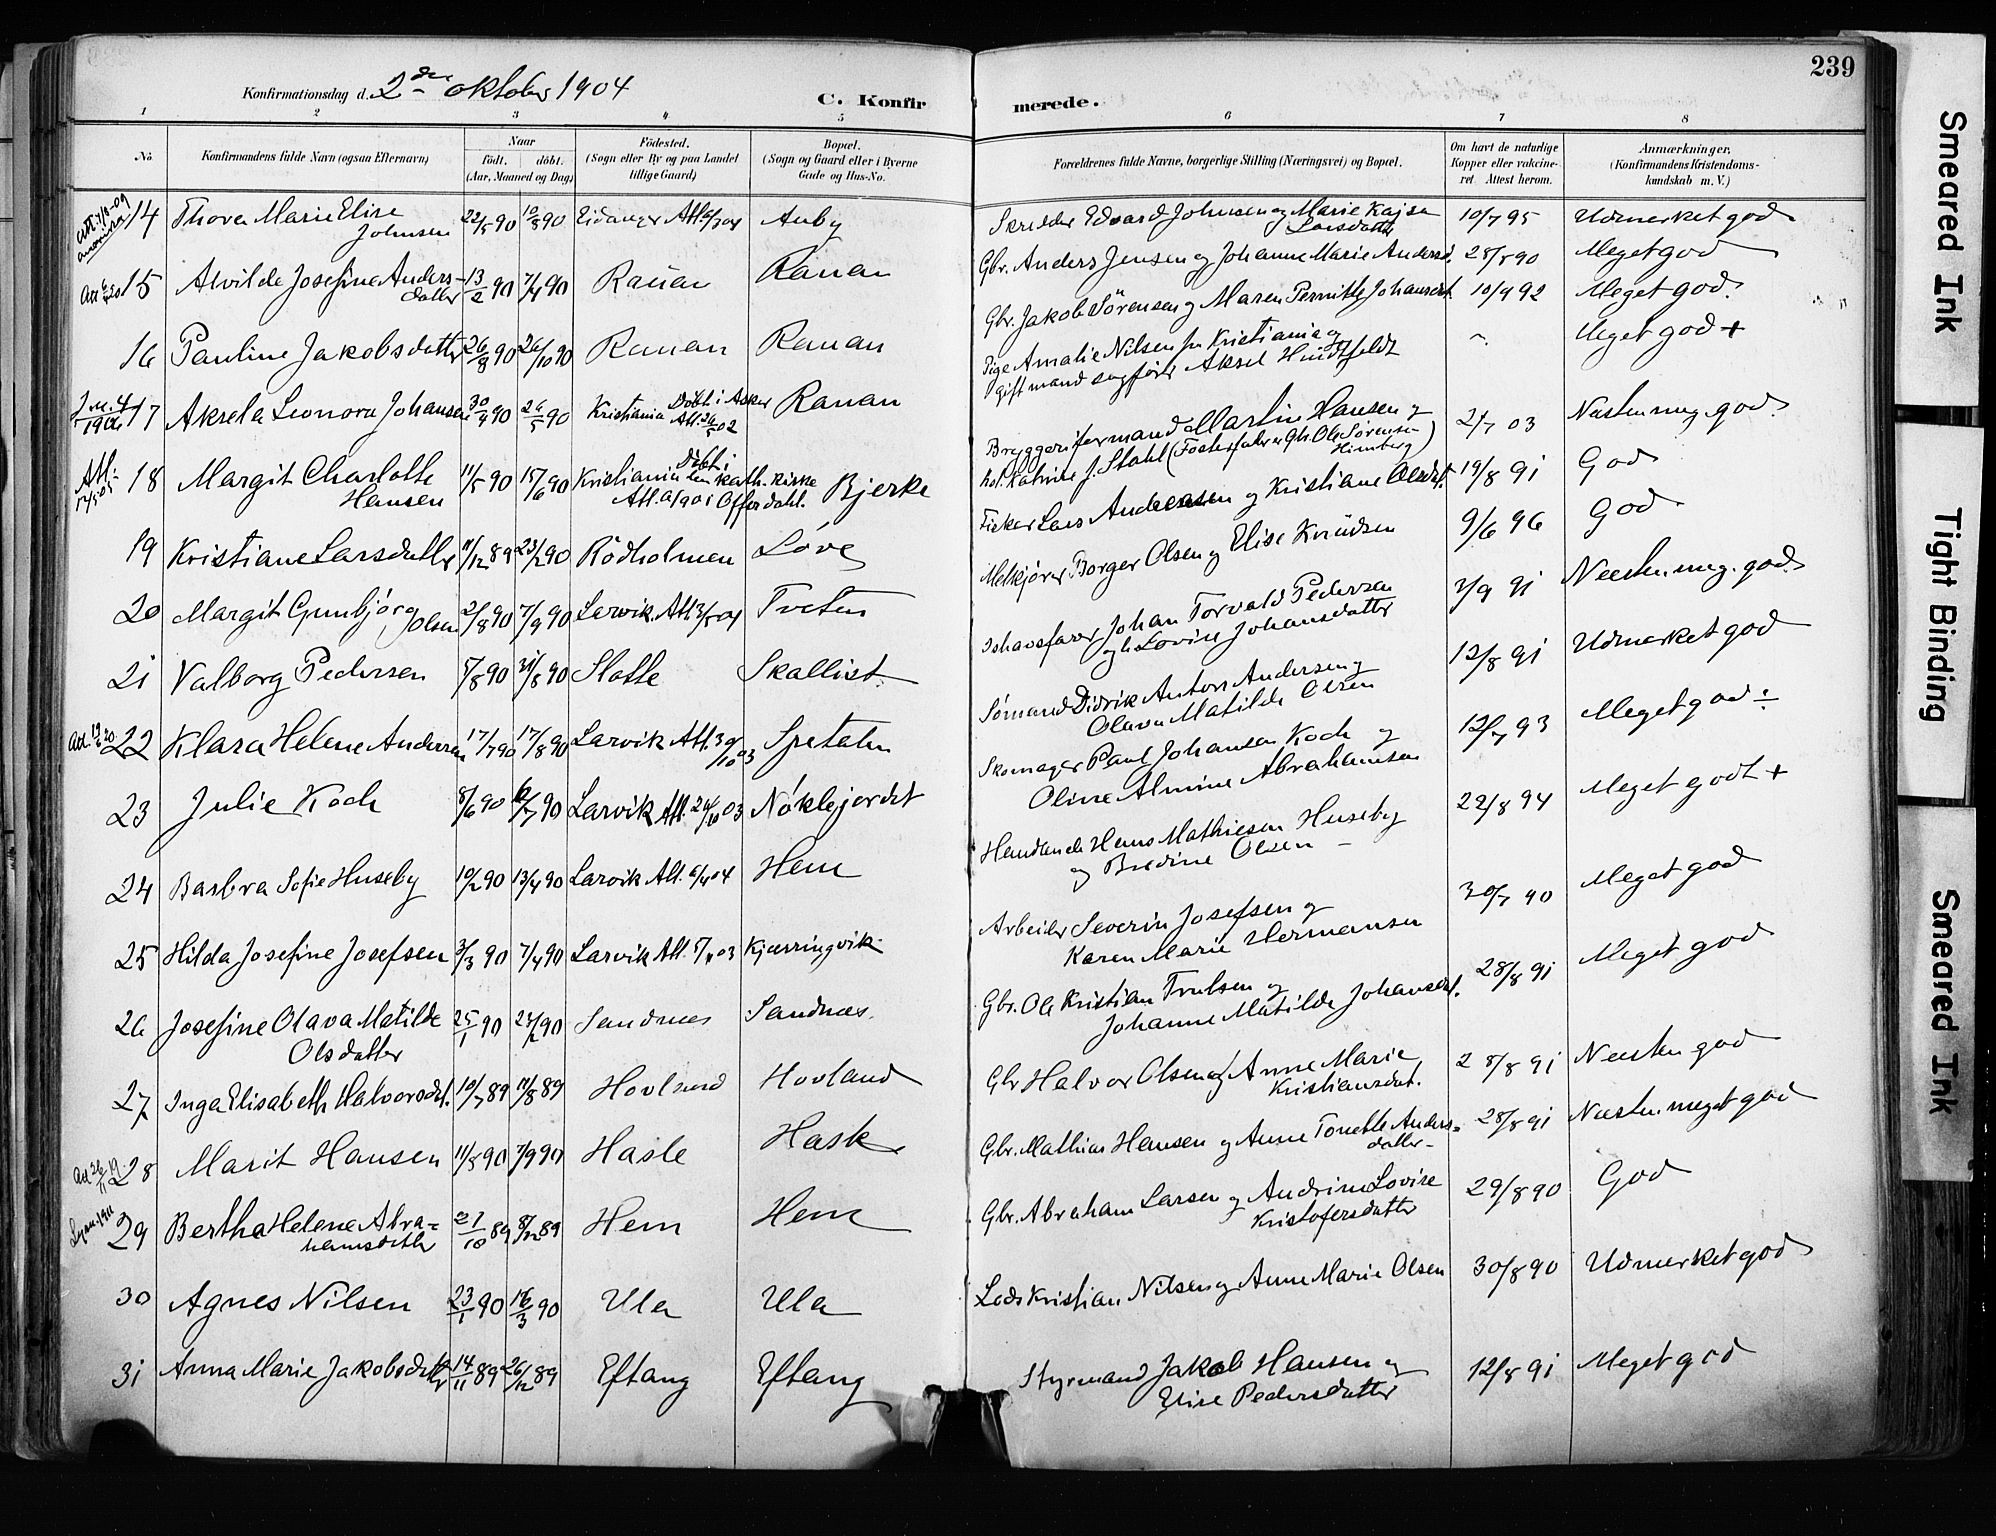 239
Konfirmationsdag d. 2den oktober 1904
C. Konfirmerede.
1 2 3 4 5 6 7 8
No.
Konfirmandens fulde Navn (ogsaa Efternavn)
Naar
født. døbt.
(Aar, Maaned og Dag)
Fødested.
(Sogn eller By og paa Landet
tillige Gaard)
Bopæl.
(Sogn og Gaard eller i Byerne
Gade og Hus-No.
Forældrenes fulde Navne, borgerlige Stilling (Næringsvei) og Bopæl.
Om havt de naturlige
Kopper eller vakcine-
ret. Attest herom.
Anmærkninger,
(Konfirmandens Kristendoms-
kundskab m. V.)
14 Thora Marie Elise 22/5 90 10/8 90 Eidanger Att. Auby Skredder Edvard Johnsen og Marie Kajsa 10/7 95 Udmerket god
Johnsen Larsdatter
15 Alvilde Josefine Anders- 13/2 90 7/4 90 Rauan Rauan Gbr. Anders Jensen og Johanne Marie Andersd. 28/8 90 Meget god
datter
16 Pauline Jakobsdatter 26/8 90 26/10 90 Rauan Rauan Gbr. Jakob Sörensen og Maren Pernille Johansdt. 10/9 92 Meget god.
17 Aksela Leonora Johansen 30/4 90 26/5 90 Kristiania Döbt i Asker Rauan Pige Amalie Nilsen fra Kristiania og Meget god +
Att. 26/5 02 gift mand sagförer Aksel Hindtfeldt
18 Margit Charlotte 11/5 90 15/6 90 Kristiania Döbt i Bjerke Bryggeriformand Martin Hansen og 2/7 03 Næsten meg. god.
Hansen kath. kirke hst. Katrine J. Stahl (Fosterfader er Gbr. Ole Sörensen
Himberg)
19 Kristiane Larsdatter 11/12 89 23/2 90 Rödholmen Löve Fisker Lars Andersen og Kristiane Olsdt. 19/8 91 God
20 Margit Gunbjörg 2/8 90 7/9 90 Larvik. Att. 3/8 04 Tveten Melkjörer Borger Olsen og Elise Knudsen 9/6 96 God
Olsen
21 Valborg Pedersen 5/8 90 31/8 90 Slotte Skallist. Ishavsfarer Johan Torvald Pedersen 3/9 91 Næsten meg. god.
og h. Lovise Johansdatter
22 Klara Helene Andersen 17/7 90 17/8 90 Larvik Att. 30/10 03 Spetalen Sömand Didrik Anton Andersen og 12/8 91 Udmerket god
Olava Matilde Olsen
23 Julie Koch 8/6 90 6/7 90 Larvik Att. 24/10 03 Nöklejordet Skomager Paul Johansen Koch og 12/7 93 Meget god ÷
Oline Almine Abrahamsen
24 Barbra Sofie Huseby 10/2 90 13/4 90 Larvik Att. 6/4 04 Hem Handlende Hans Mathiesen Huseby 22/8 94 Meget godt +
og Bredine Olsen –
25 Hilda Josefine Josefsen 3/3 90 7/4 90 Larvik Att. Kjærringvik Arbeider Severin Josefsen og 30/7 90 Meget god
Karen Marie Hermansen
26 Josefine Olava Matilde 25/1 90 24/2 90 Sandnæs Sandnæs. Gbr. Ole Kristian Trulsen og 28/8 91 Meget god
Olsdatter Johanne Matilde Johansdt.
27 Inga Elisabeth Halvorsdt. 10/7 89 11/8 89 Hovland Hovland Gbr Halvor Olsen og Anne Marie 28/8 91 Næsten god
Kristiansdat.
28 Marit Hansen 11/8 90 7/9 90 Hasle Hask Gbr. Mathias Hansen og Anne Tonette Anders- 28/8 91 Næsten meget god
datter –
29 Bertha Helene Abra- 27/10 89 8/12 89 Hem Hem Gbr. Abraham Larsen og Andrine Lovise 29/8 90 God
hamsdatter Kristofersdatter
30 Agnes Nilsen 23/1 90 16/3 90 Ula Ula Lods Kristian Nilsen og Anne Marie Olsen 30/8 90 Udmerket god
31 Anna Marie Jakobsdatter 14/11 89 26/12 89 Eftang Eftang Styrmand Jakob Hansen og 12/8 91 Meget god
Elise Pedersdatter
Smeared Ink
Tight Binding
Smeared Ink